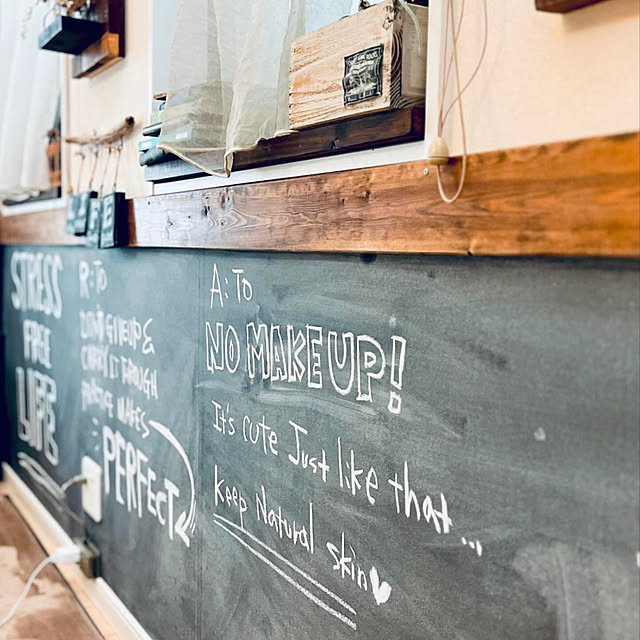 STRESS
FREE
LIFE
R: TO
DON'T GIVE UP &
CARRY IT THROUGH
PRACTICE MAKES
PERFECT
A: TO
NO MAKEUP!
It's cute Just like that...
Keep Natural skin♥